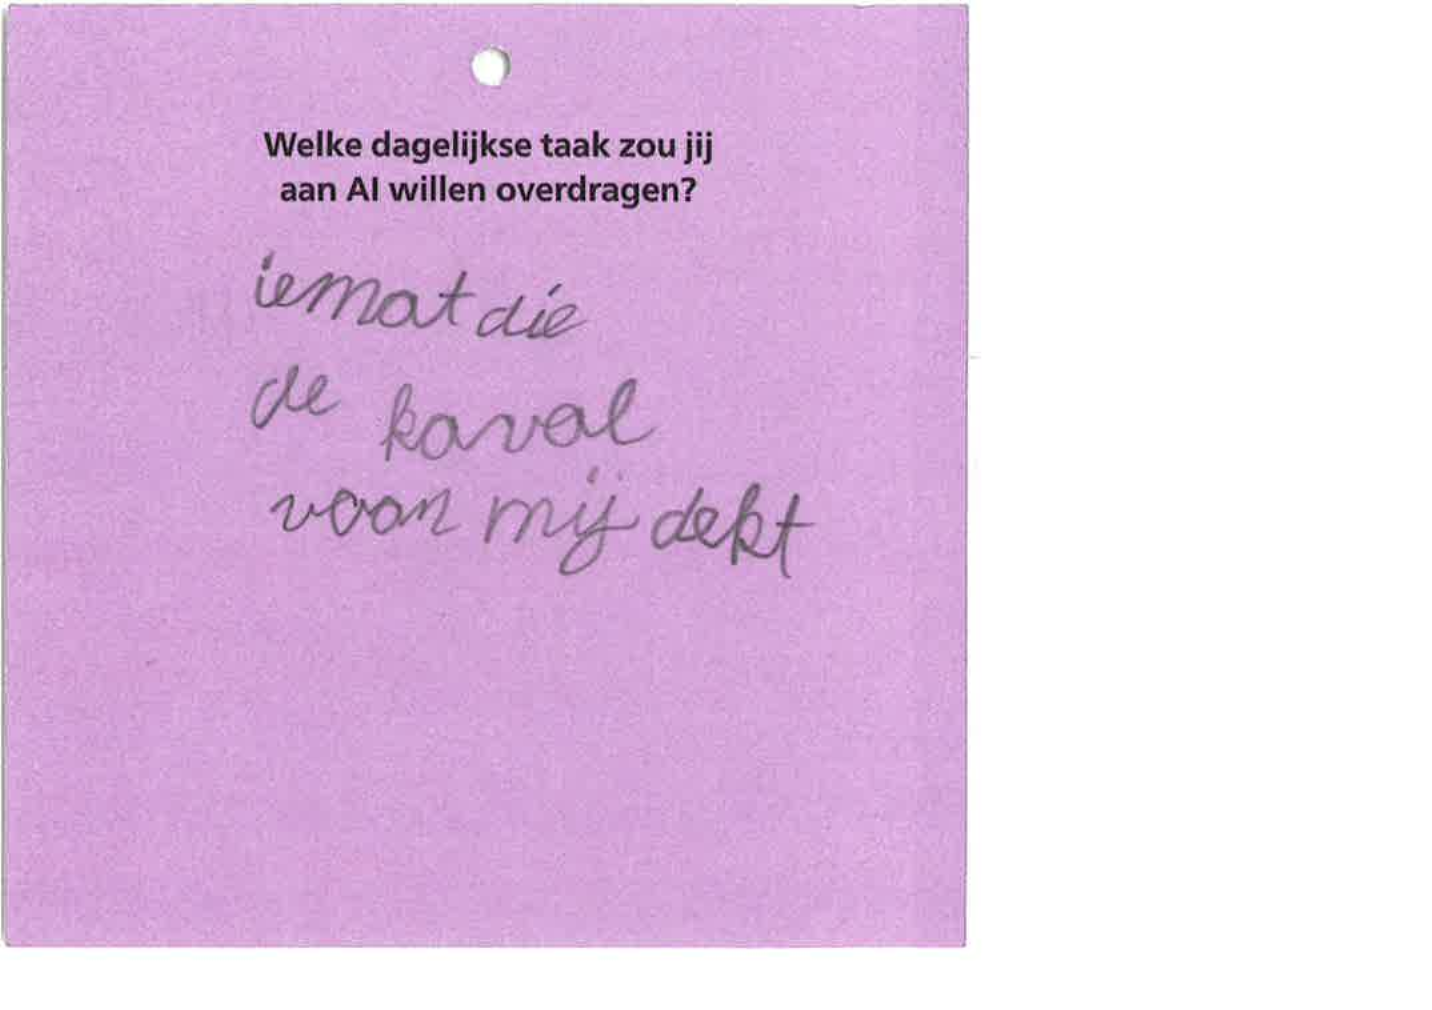 Welke dagelijkse taak zou jij
aan AI willen overdragen?
iemat die
de kaval
voor mij dekt